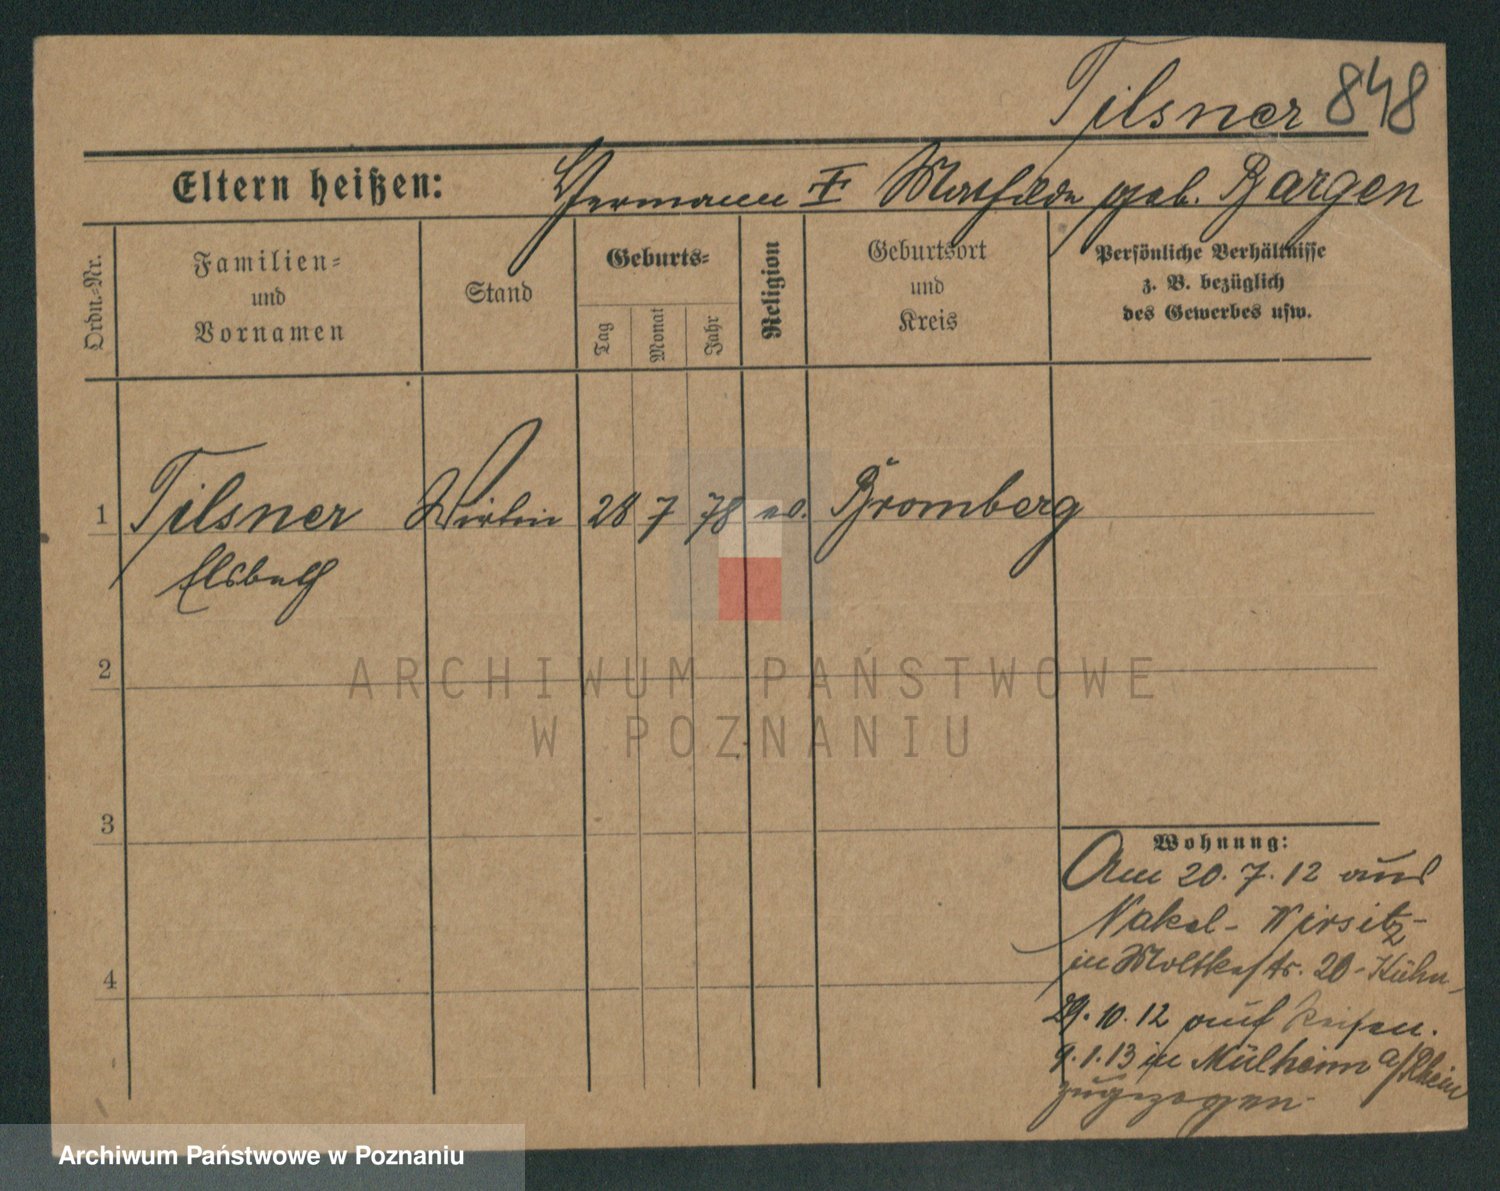 Tilsner 848
Eltern heißen: Hermann ✝ Mathilde geb. Bargen
Ordn.=Nr.
Familien=
und
Vornamen
Stand
Geburts=
Tag
Monat
Jahr
Religion
Geburtsort
und
Kreis
Persönliche Verhältnisse
z. B. bezüglich
des Gewerbes usw.
1 Tilsner Wirtin 28 7 78 ev. Bromberg
Elsbeth
2
3
4
Wohnung:
Am 20. 7. 12 aus
Nakel - Wirsitz -
in Moltkestr. 20 - Kühn
29. 10. 12 auf Reisen.
9. 1. 13 in Mülheim a/Rhein
zugezogen.
ARCHIWUM PAŃSTWOWE
W POZNANIU
Archiwum Państwowe w Poznaniu